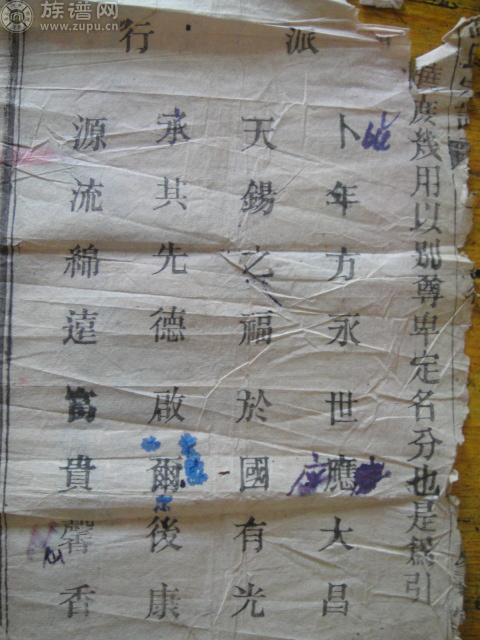 族谱网
www.zupu.cn
庶幾用以別尊卑定名分也是為引
派行
卜年方永世應大昌
天錫之福於國有光
承其先德啟爾後康
源流綿遠富貴馨香